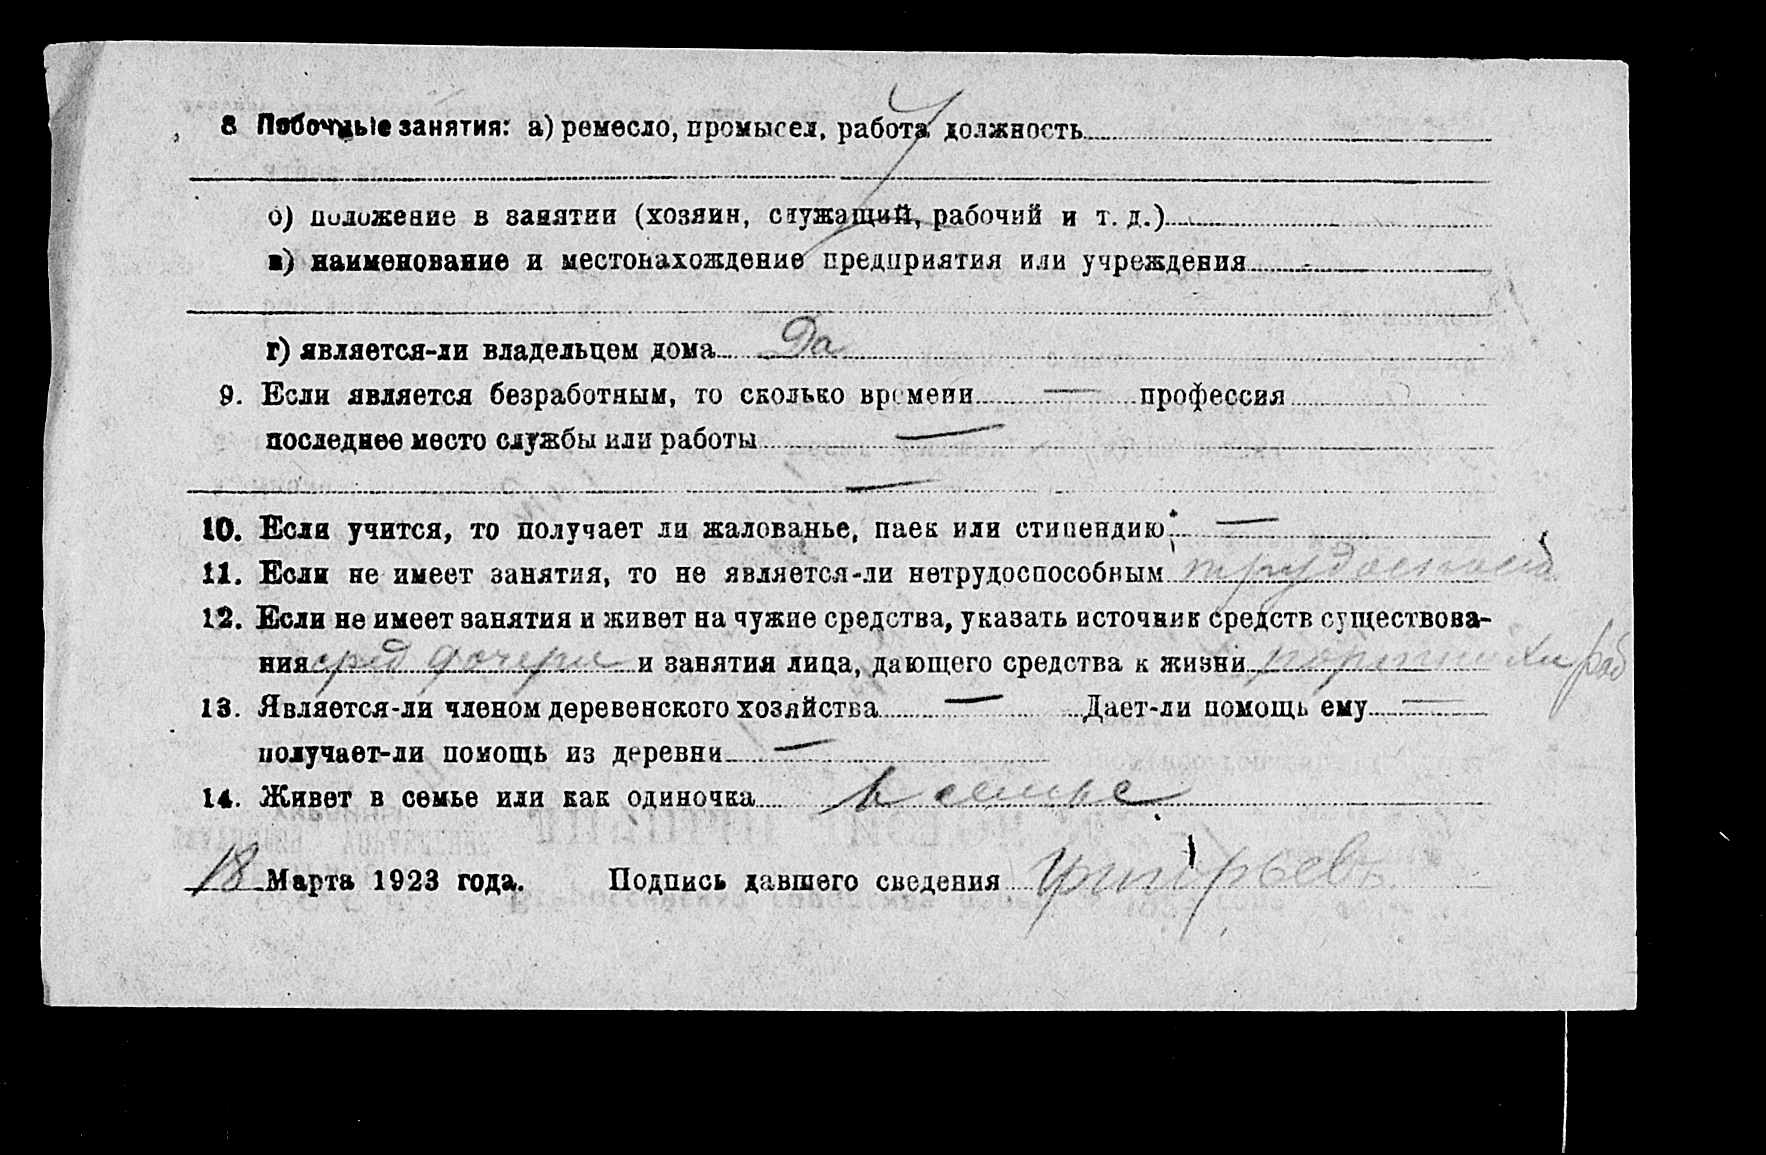 8 Побочные занятия: а) ремесло, промысел, работа должность
б) положение в занятии (хозяин, служащий, рабочий и т. д.)
в) наименование и местонахождение предприятия или учреждения
г) является-ли владельцем дома Да
9. Если является безработным, то сколько времени — профессия
последнее место службы или работы —
—
10. Если учится, то получает ли жалованье, паек или стипендию —
11. Если не имеет занятия, то не является-ли нетрудоспособным трудоспособ
12. Если не имеет занятия и живет на чужие средства, указать источник средств существова-
ния сред дочери и занятия лица, дающего средства к жизни
13. Является-ли членом деревенского хозяйства — Дает-ли помощь ему —
получает-ли помощь из деревни —
14. Живет в семье или как одиночка в семье
18 Марта 1923 года. Подпись давшего сведения Григорьевъ